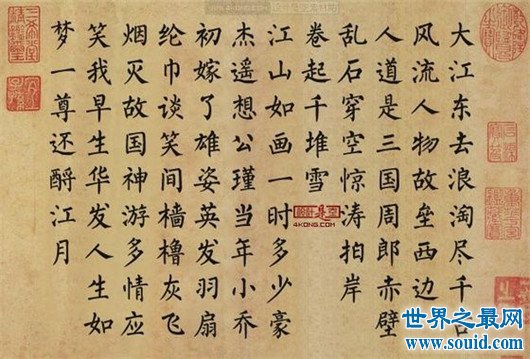 大江东去浪淘尽千古
风流人物故垒西边
人道是三国周郎赤壁
乱石穿空惊涛拍岸
卷起千堆雪
江山如画一时多少豪
杰遥想公瑾当年小乔
初嫁了雄姿英发羽扇
纶巾谈笑间樯橹灰飞
烟灭故国神游多情应
笑我早生华发人生如
梦一尊还酹江月
4KONG.COM
世界之最网
www.souid.com